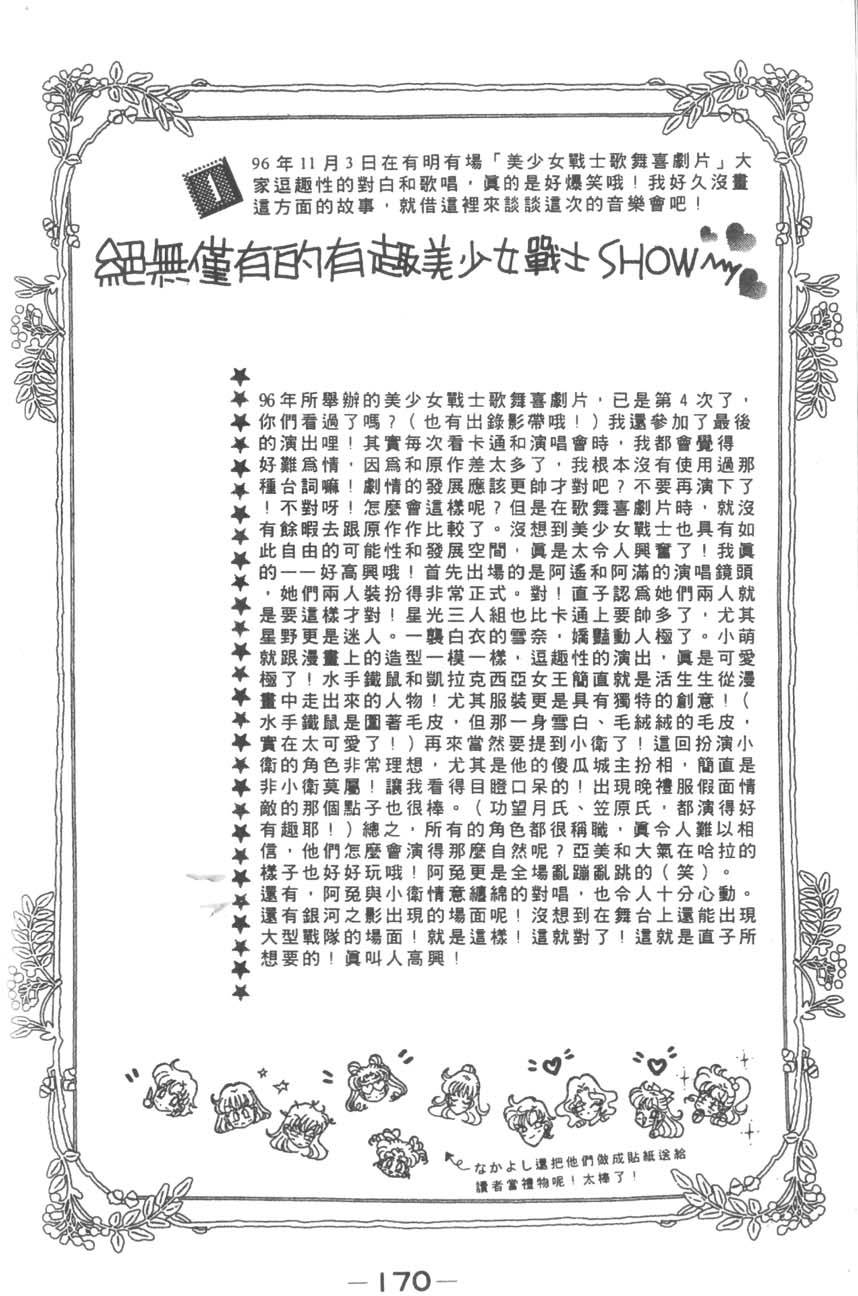 1
96年11月3日在有明有場「美少女戰士歌舞喜劇片」大
家逗趣性的對白和歌唱，眞的是好爆笑哦！我好久沒畫
這方面的故事，就借這裡來談談這次的音樂會吧！
絕無僅有的有趣美少女戰士SHOW
96年所舉辦的美少女戰士歌舞喜劇片，已是第4次了，
你們看過了嗎？（也有出錄影帶哦！）我還參加了最後
的演出哩！其實每次看卡通和演唱會時，我都會覺得
好難爲情，因爲和原作差太多了，我根本沒有使用過那
種台詞嘛！劇情的發展應該更帥才對吧？不要再演下了
！不對呀！怎麼會這樣呢？但是在歌舞喜劇片時，就沒
有餘暇去跟原作作比較了。沒想到美少女戰士也具有如
此自由的可能性和發展空間，眞是太令人興奮了！我眞
的一一好高興哦！首先出場的是阿遙和阿滿的演唱鏡頭
，她們兩人裝扮得非常正式。對！直子認爲她們兩人就
是要這樣才對！星光三人組也比卡通上要帥多了，尤其
星野更是迷人。一襲白衣的雪奈，嬌豔動人極了。小萌
就跟漫畫上的造型一模一樣，逗趣性的演出，眞是可愛
極了！水手鐵鼠和凱拉克西亞女王簡直就是活生生從漫
畫中走出來的人物！尤其服裝更是具有獨特的創意！（
水手鐵鼠是圍著毛皮，但那一身雪白、毛絨絨的毛皮，
實在太可愛了！）再來當然要提到小衛了！這回扮演小
衛的角色非常理想，尤其是他的傻瓜城主扮相，簡直是
非小衛莫屬！讓我看得目瞪口呆的！出現晚禮服假面情
敵的那個點子也很棒。（功望月氏、笠原氏，都演得好
有趣耶！）總之，所有的角色都很稱職，眞令人難以相
信，他們怎麼會演得那麼自然呢？亞美和大氣在哈拉的
樣子也好好玩哦！阿兔更是全場亂蹦亂跳的（笑）。
還有，阿兔與小衛情意纏綿的對唱，也令人十分心動。
還有銀河之影出現的場面呢！沒想到在舞台上還能出現
大型戰隊的場面！就是這樣！這就對了！這就是直子所
想要的！眞叫人高興！
なかよし還把他們做成貼紙送給
讀者當禮物呢！太棒了！
—170—